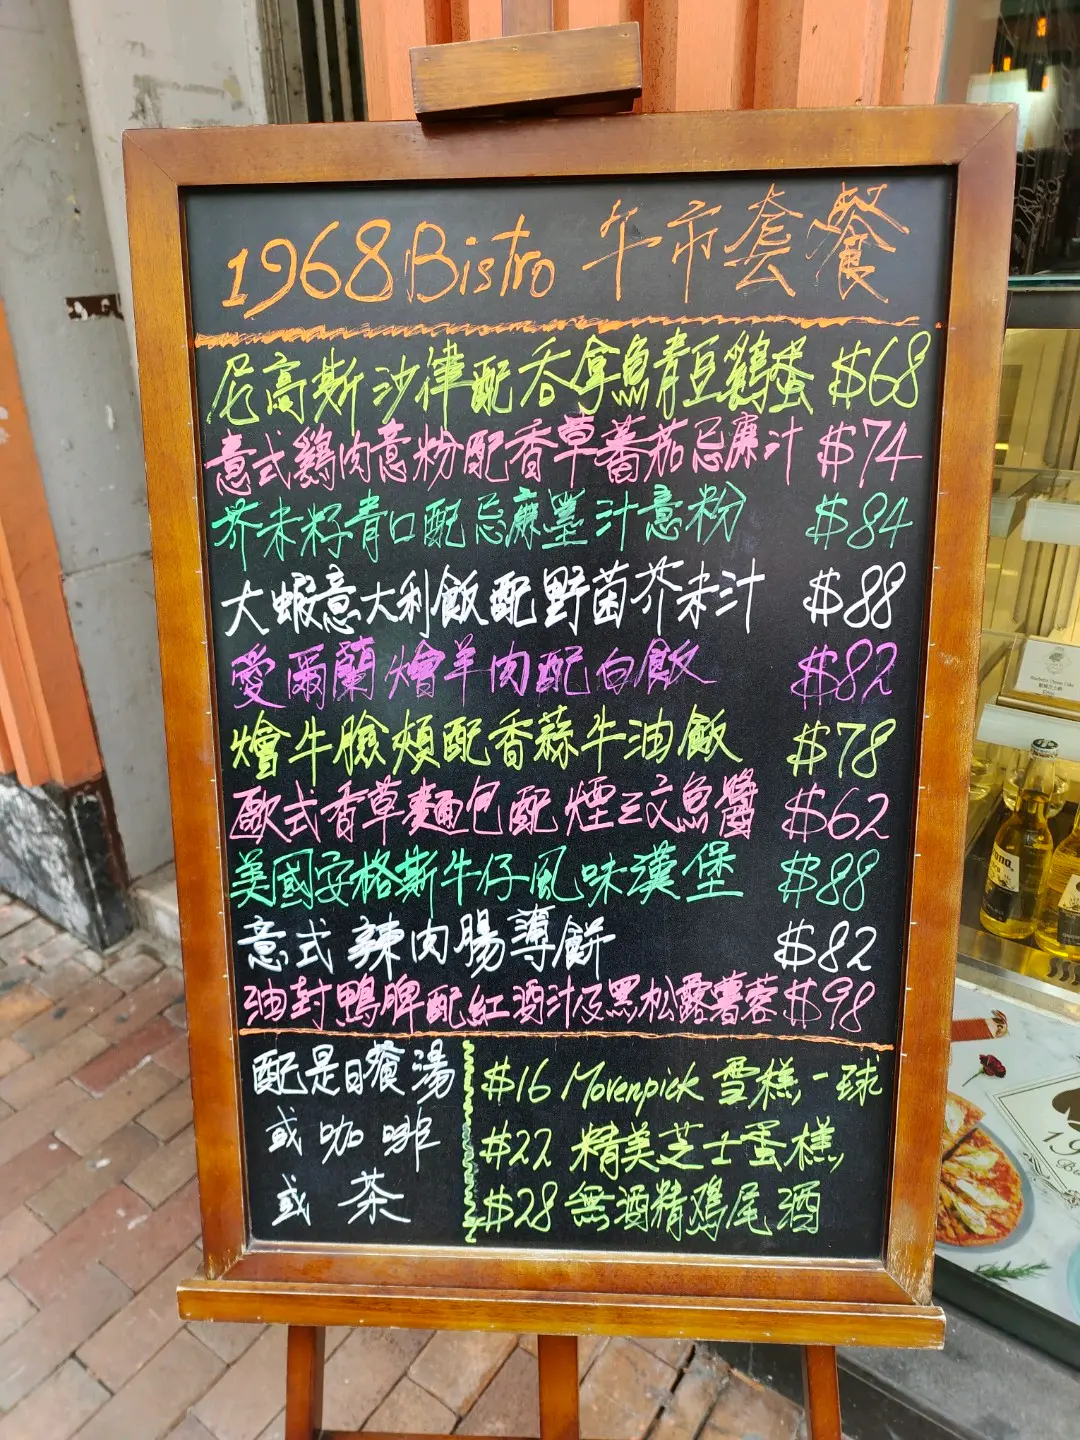 1968 Bistro 午市套餐
尼高斯沙律配吞拿魚青豆鷄蛋 $68
意式鷄肉意粉配香草蕃茄忌廉汁 $74
芥末籽青口配忌廉墨汁意粉 $84
大蝦意大利飯配野菌芥末汁 $88
愛爾蘭燴羊肉配白飯 $82
燴牛臉頰配香蒜牛油飯 $78
歐式香草麵包配煙三文魚醬 $62
美國安格斯牛仔風味漢堡 $88
意式辣肉腸薄餅 $82
油封鴨脾配紅酒汁及黑松露薯蓉 $98
配是日餐湯
或咖啡
或茶
$16 Movenpick 雪糕一球
$22 精美芝士蛋糕
$28 無酒精鷄尾酒